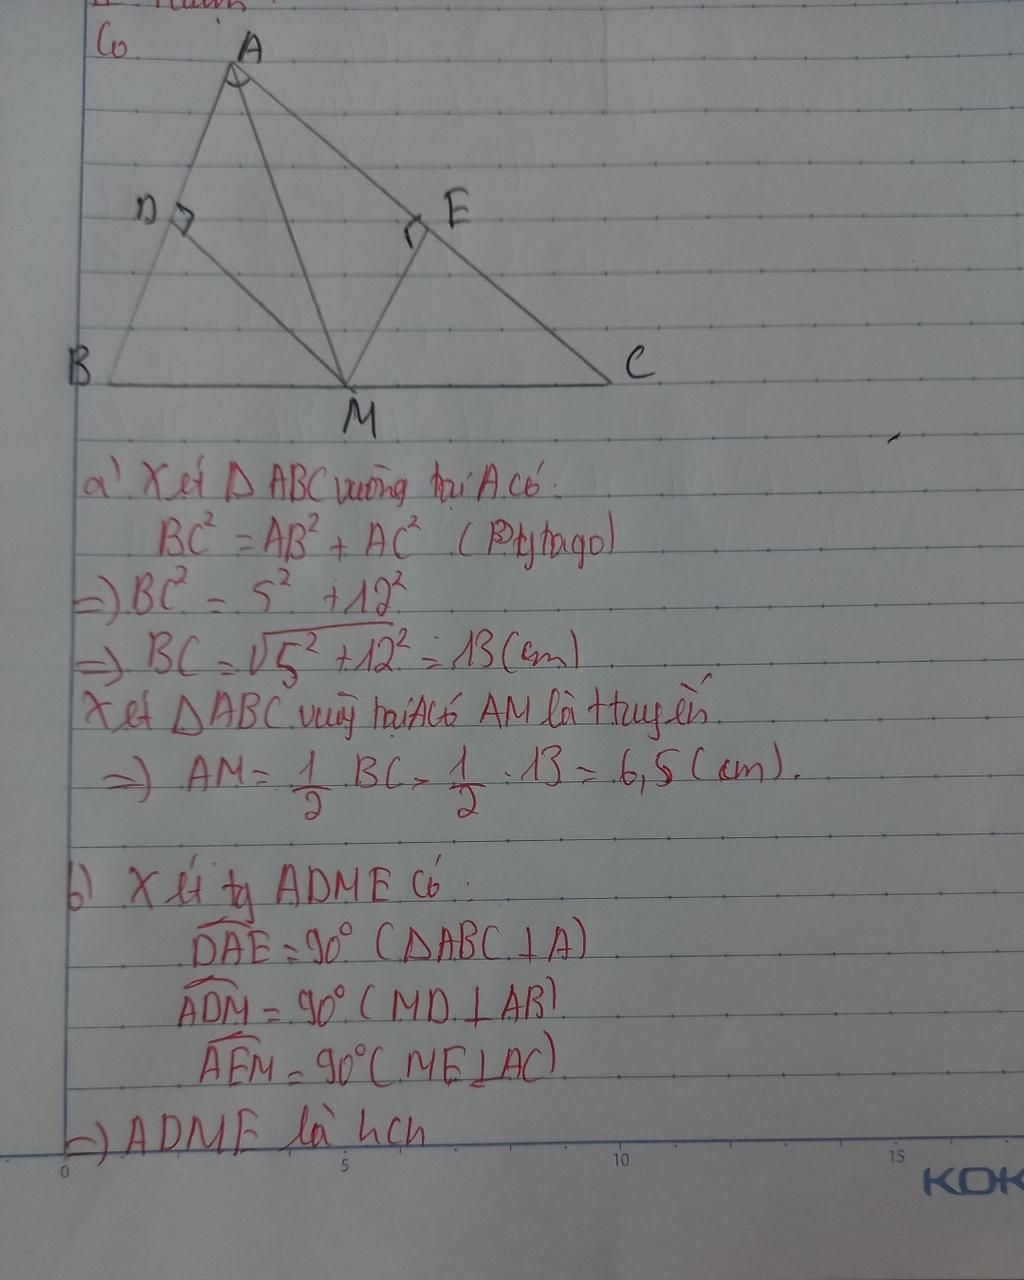 Co
A
D
E
B
C
M
a) Xét Δ ABC vuông tại A có:
BC² = AB² + AC² (Pytago)
=> BC² = 5² + 12²
=> BC = √5² + 12² = 13 (cm)
Xét ΔABC vuông tại A có AM là ttuyến
=> AM = 1/2 BC = 1/2 . 13 = 6,5 (cm).
b) Xét tg ADME có:
DAE = 90° (ΔABC ⊥ A)
ADM = 90° (MD ⊥ AB)
AEM = 90° (ME ⊥ AC)
=> ADME là hcn
0 5 10 15
KOK